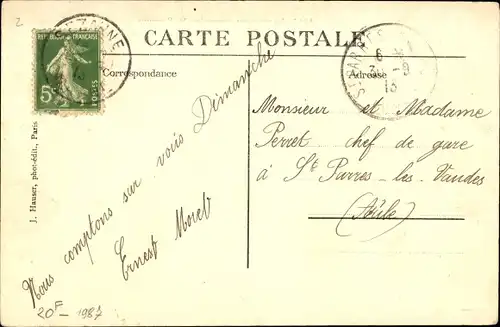 2
CARTE POSTALE
REPUBLIQUE FRANÇAISE
5c
POSTES
Correspondance
Adresse
Nous comptons sur vous Dimanche
Ernest Morel
Monsieur et Madame
Perret chef de gare
à St Parres-les-Vaudes
(Aube)
J. Hauser, phot-édit., Paris
20F - 1987